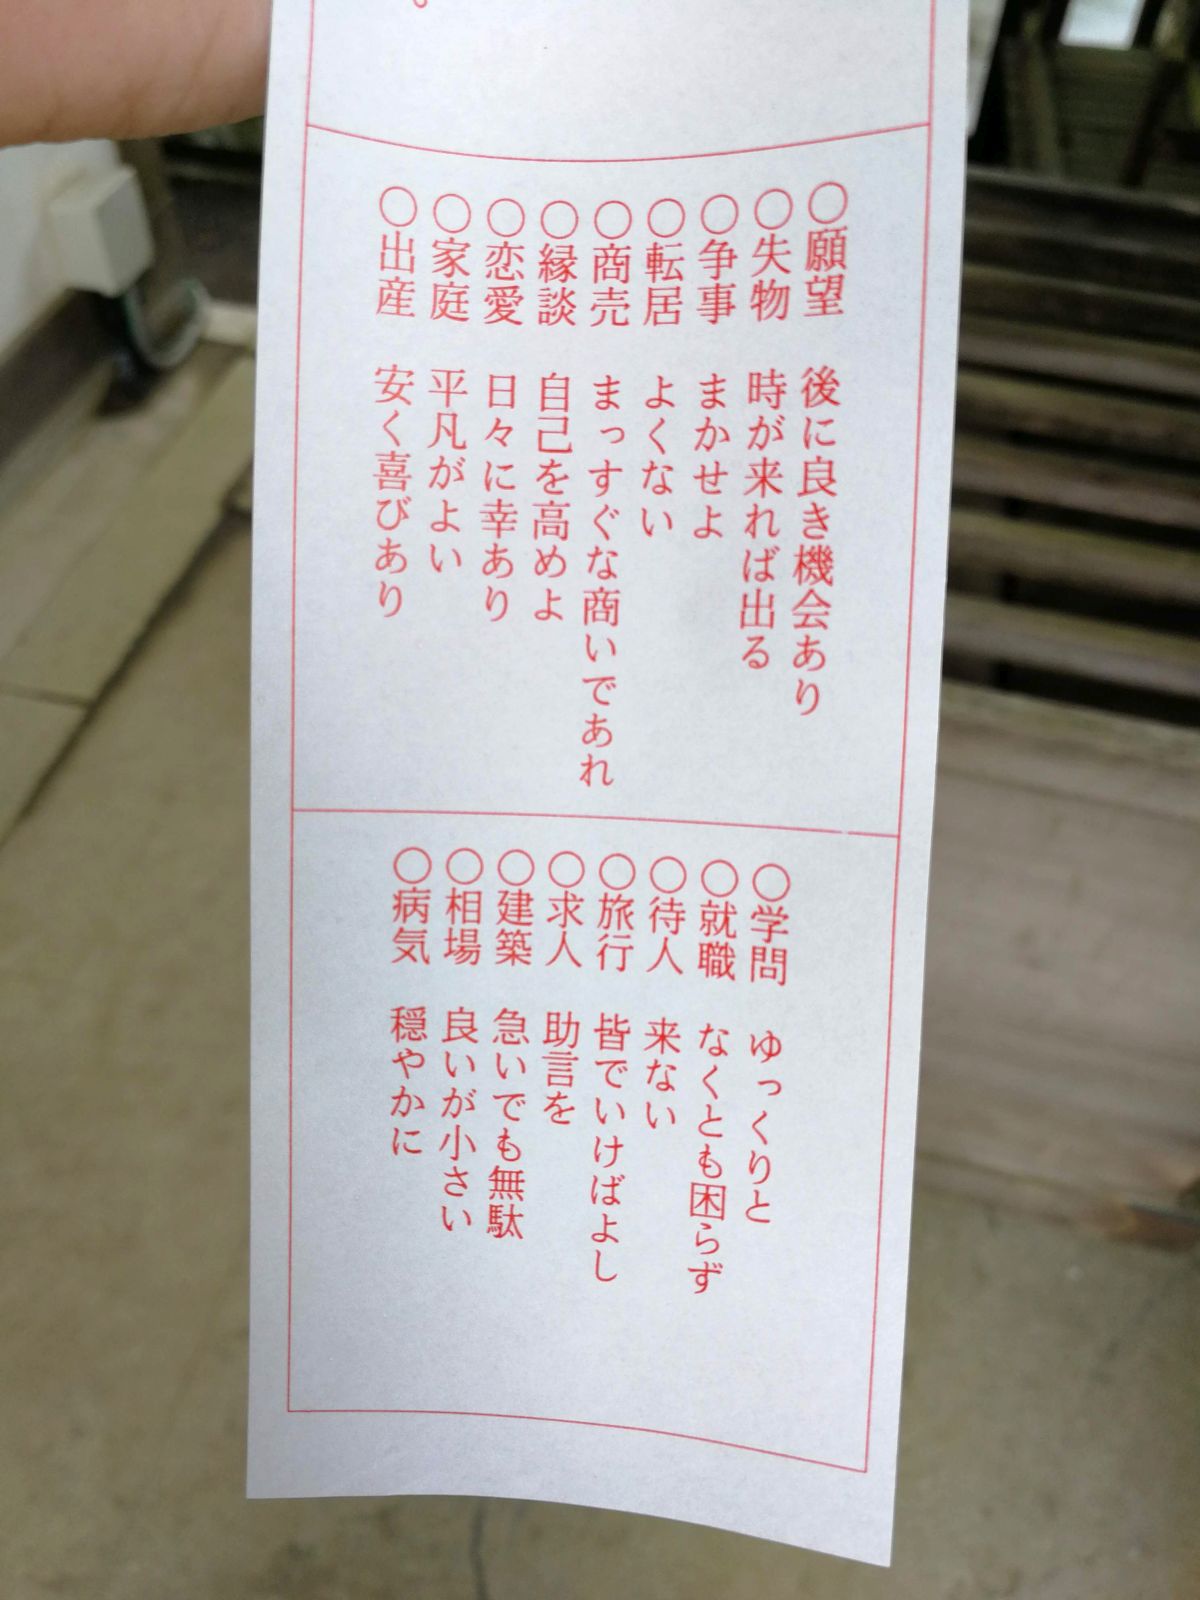 ○願望 後に良き機会あり
○失物 時が来れば出る
○争事 まかせよ
○転居 よくない
○商売 まっすぐな商いであれ
○縁談 自己を高めよ
○恋愛 日々に幸あり
○家庭 平凡がよい
○出産 安く喜びあり
○学問 ゆっくりと
○就職 なくとも困らず
○待人 来ない
○旅行 皆でいけばよし
○求人 助言を
○建築 急いでも無駄
○相場 良いが小さい
○病気 穏やかに